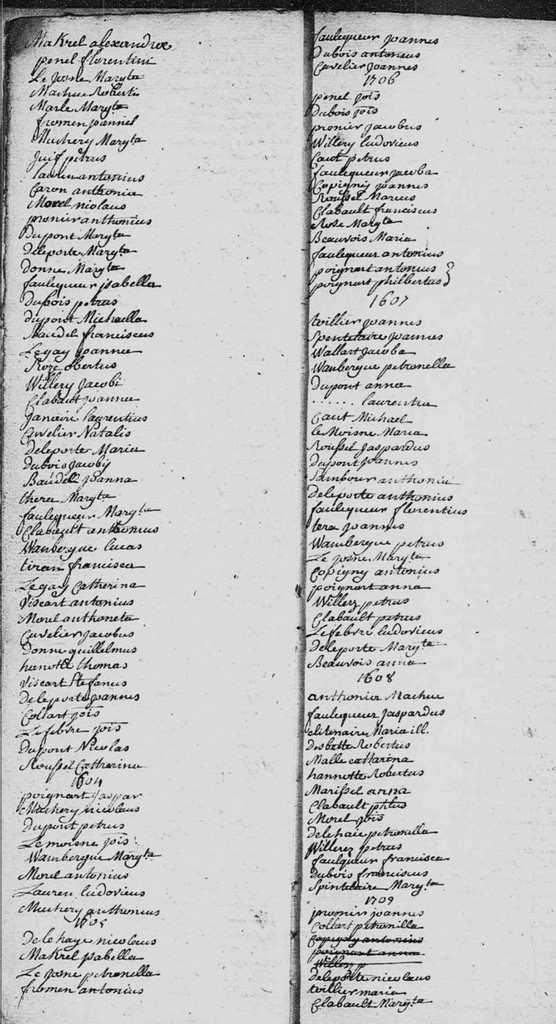 Makrel alexandrea
penel florentini
Le Josne Maryta
Machue Roberti
Marle Maryta
fromen joannel
Muchery Maryta
Juif petrus
lauren antonius
Caron anthonia
Morel nicolaus
pronier anthonius
Dupont Maryta
deleporte Maryta
donne Maryta
faulequeur isabella
Dubois petrus
dupont Michaella
Maudel franciscus
Legay joanna
Roze obertus
Willery Jacobi
Clabault joanna
Janoire laurentius
Cuvelier Natalis
deleporte Maria
Dubois Jacobij
Baudell joanna
theru Maryta
faulequeur Maryta
Clabault anthonius
Wambergue lucas
tiran francisca
Legay Catherina
Viscart antonius
Morel anthoneta
Cuvelier Jacobus
donne guillelmus
hanotte thomas
viscart Stefanus
deleporte joannus
Collart jois
Lefebvre jois
dupont Nicolas
Roussel Catharina
1604
poignart jaspar
Muchery nicolaus
dupont petrus
Lemoisne jois
Wambergue Maryta
Morel antonius
Lauren ludovicus
Muchery anthonius
1705
delehaye nicolaus
Makrel isabella
Le Josne petronella
fromen antonius
faulequeur joannes
Dubois antonius
Cuvelier joannes
1706
penel jois
Dubois jois
pronier jacobus
Willery ludovicus
Caut petrus
faulequeur jacoba
Copigny joannes
Roussel Marcus
Clabault franciscus
Roze Maryta
Beauvois Maria
faulequeur antonius
poignart antonius
poignart philbertus
1607
tvillier joannes
Spentelaire joannes
Wallart jacoba
Wambergue petronella
Dupont anna
....... laurentia
Caut Michael
le Moisne Maria
Roussel Jaspardus
dupont joannes
Sambour anthonia
deleporte anthonius
faulequeur florentius
tera joannes
Wambergue petrus
Le Josne Maryta
Copigny antonius
poignart anna
Willery petrus
Clabault petrus
Lefebvre ludovicus
deleporte Maryta
Beauvois anna
1608
anthonia Machue
faulequeur jaspardus
clitenaire Maria ill.
desbette Robertus
Malle catharina
hannotte Robertus
Marissel anna
Clabault pttus
Morel jois
delehaie petronilla
Willerez petrus
faulqueur francisca
Dubois franciscus
Spintelaire Maryta
1709
pronier joannes
Collart petronilla
Copigny antonius
poignart anna
Willery p
deleporte nicolaus
tvillier maria
Clabault Maryta